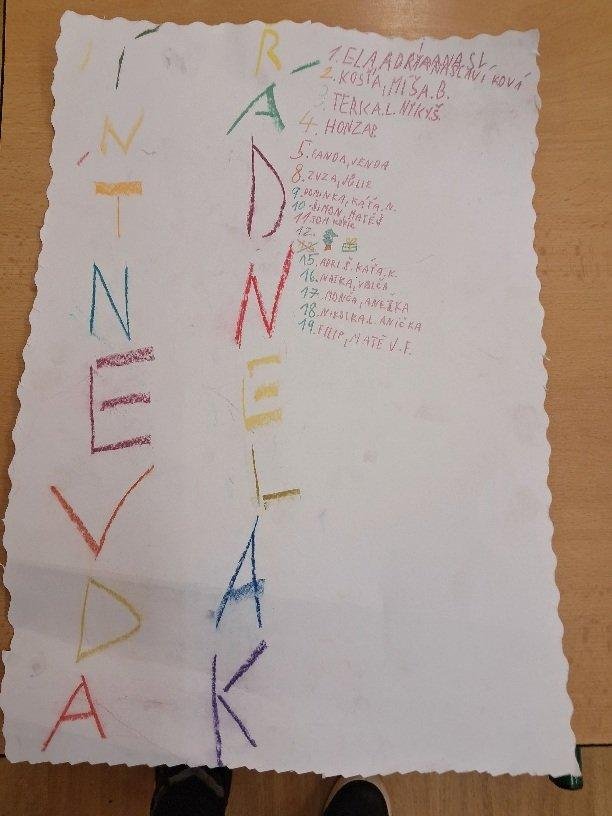 ADVENTNÍ
KALENDÁŘ
1. ELA, ADRIANA SL.
2. KOSŤA, MÍŠA.B.
3. TERKA.L. NIKYŠ.
4. HONZA P.
5. FANDA, VENDA
8. ZUZA, JŮLIE
9. DOMINKA, KÁŤA. N.
10. ŠIMON, MATĚJ
11 TOM
12.
15. ADRI.Š. KÁŤA. K.
16. NATKA, VALČA
17. MONČA, ANEŽKA
18. NIKOLKA.L. ANIČKA
19. FILIP, MATĚJ.F.